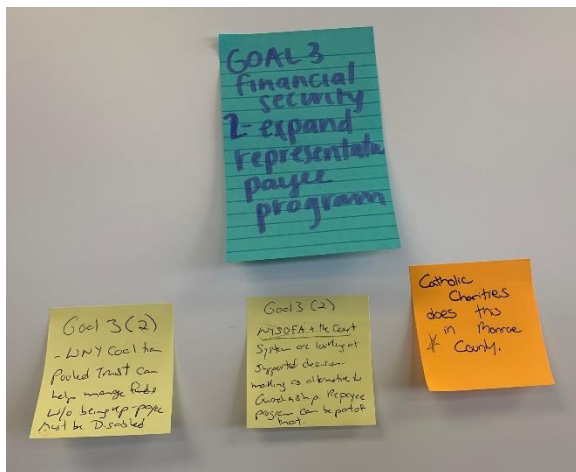 GOAL 3
financial
security
2- expand
representate
payee
program
Goal 3 (2)
- WNY Coalition
Pooled Trust can
help manage funds
w/o being rep payee
Must be Disabled
Goal 3 (2)
NYSOFA + the Court
System are looking at
Supported decision-
making as alternative to
Guardianship Repayee
program can be part of
that.
Catholic
Charities
does this
in Monroe
County.